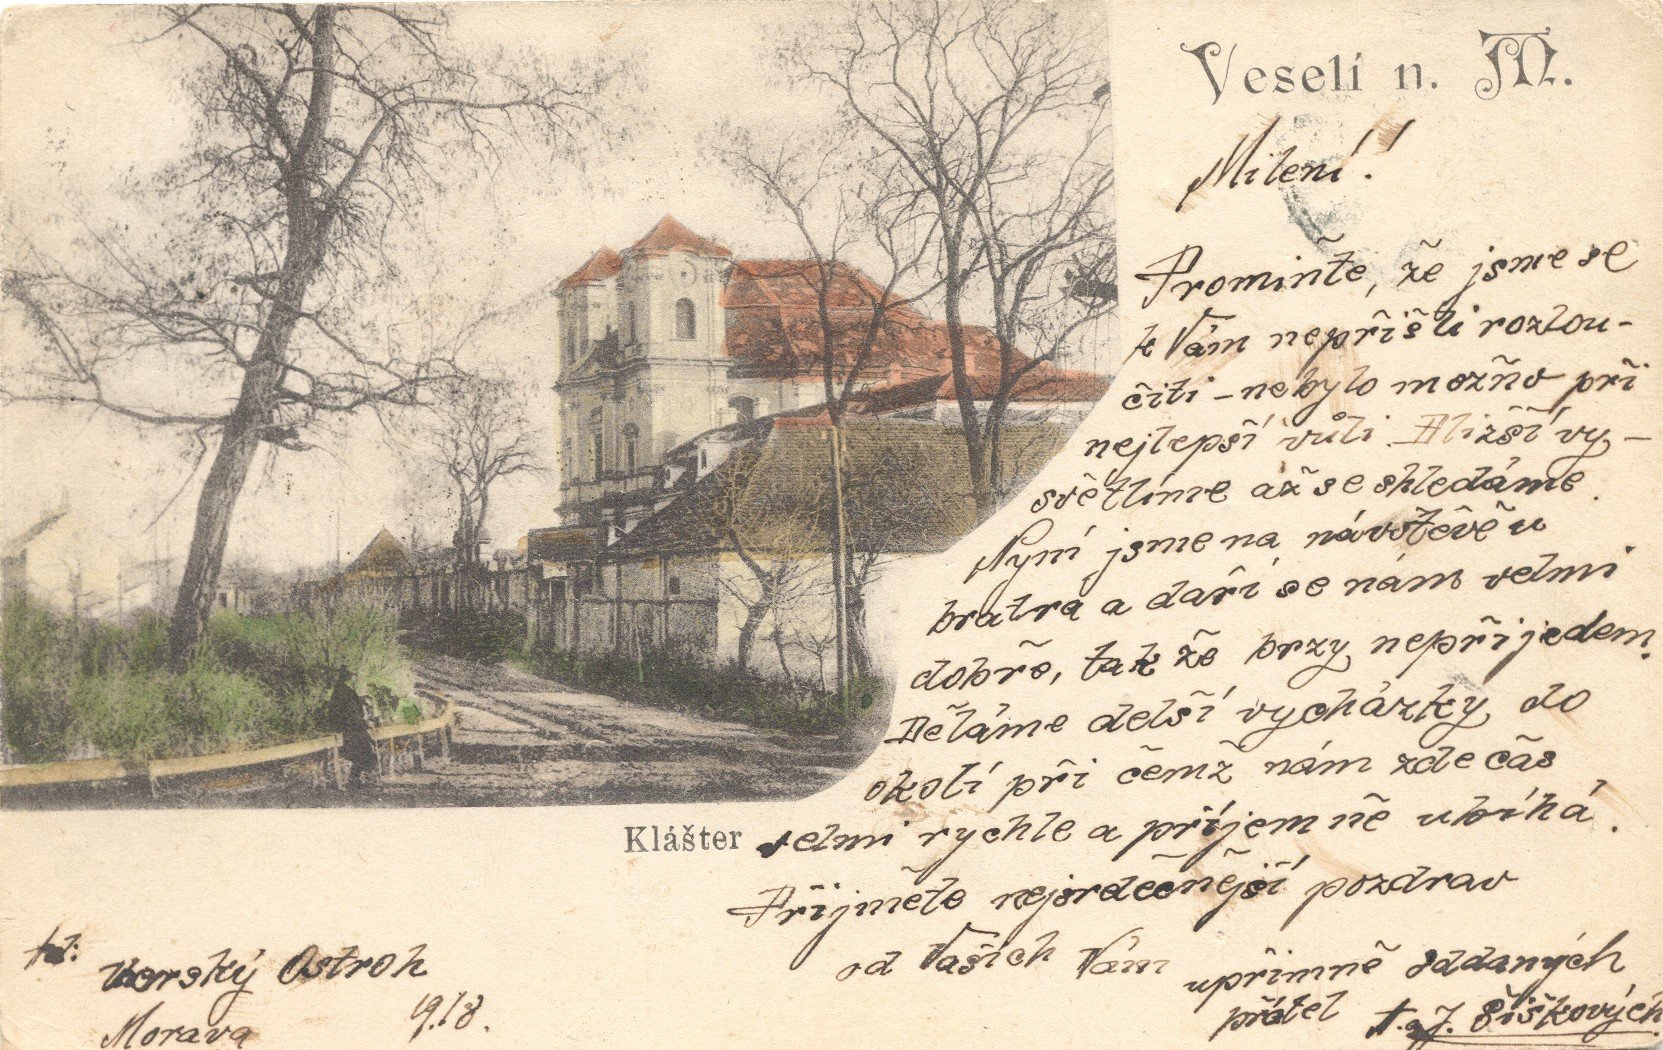 Veselí n. M.
Milení!
Promiňte, že jsme se
k Vám nepřišli rozlou-
čiti – nebylo možno při
nejlepší vůli. Bližší vy-
světlíme až se shledáme.
Nyní jsme na návštěvě u
bratra a daří se nám velmi
dobře, tak že brzy nepřijedem.
Děláme delší vycházky do
okolí při čemž nám zde čas
velmi rychle a příjemně ubíhá.
Klášter
Přijměte nejsrdečnější pozdrav
od Vašich Vám
upřimně oddaných
přátel
A. a J. Šiškových
Uherský Ostroh
Morava
9./8.